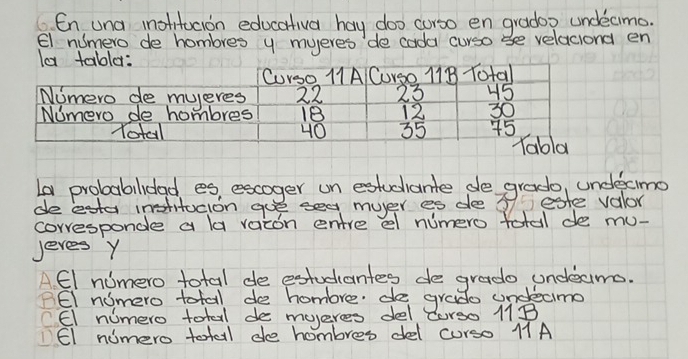 6. En una institución educativa hay dos curso en grados undécimo.
El número de hombres y mujeres de cada curso se relaciona en
la tabla:
Curso 11A Curso 11B Total
Número de mujeres 22 23 45
Número de hombres 18 12 30
Total 40 35 75
Tabla
La probabilidad es escoger un estudiante de grado undécimo
de esta institución que sea mujer es de 3/5 este valor
corresponde a la razón entre el número total de mu-
jeres y
A. El número total de estudiantes de grado undécimo.
B. El número total de hombre. de grado undécimo
C. El número total de mujeres del curso 11B
D. El número total de hombres del curso 11A